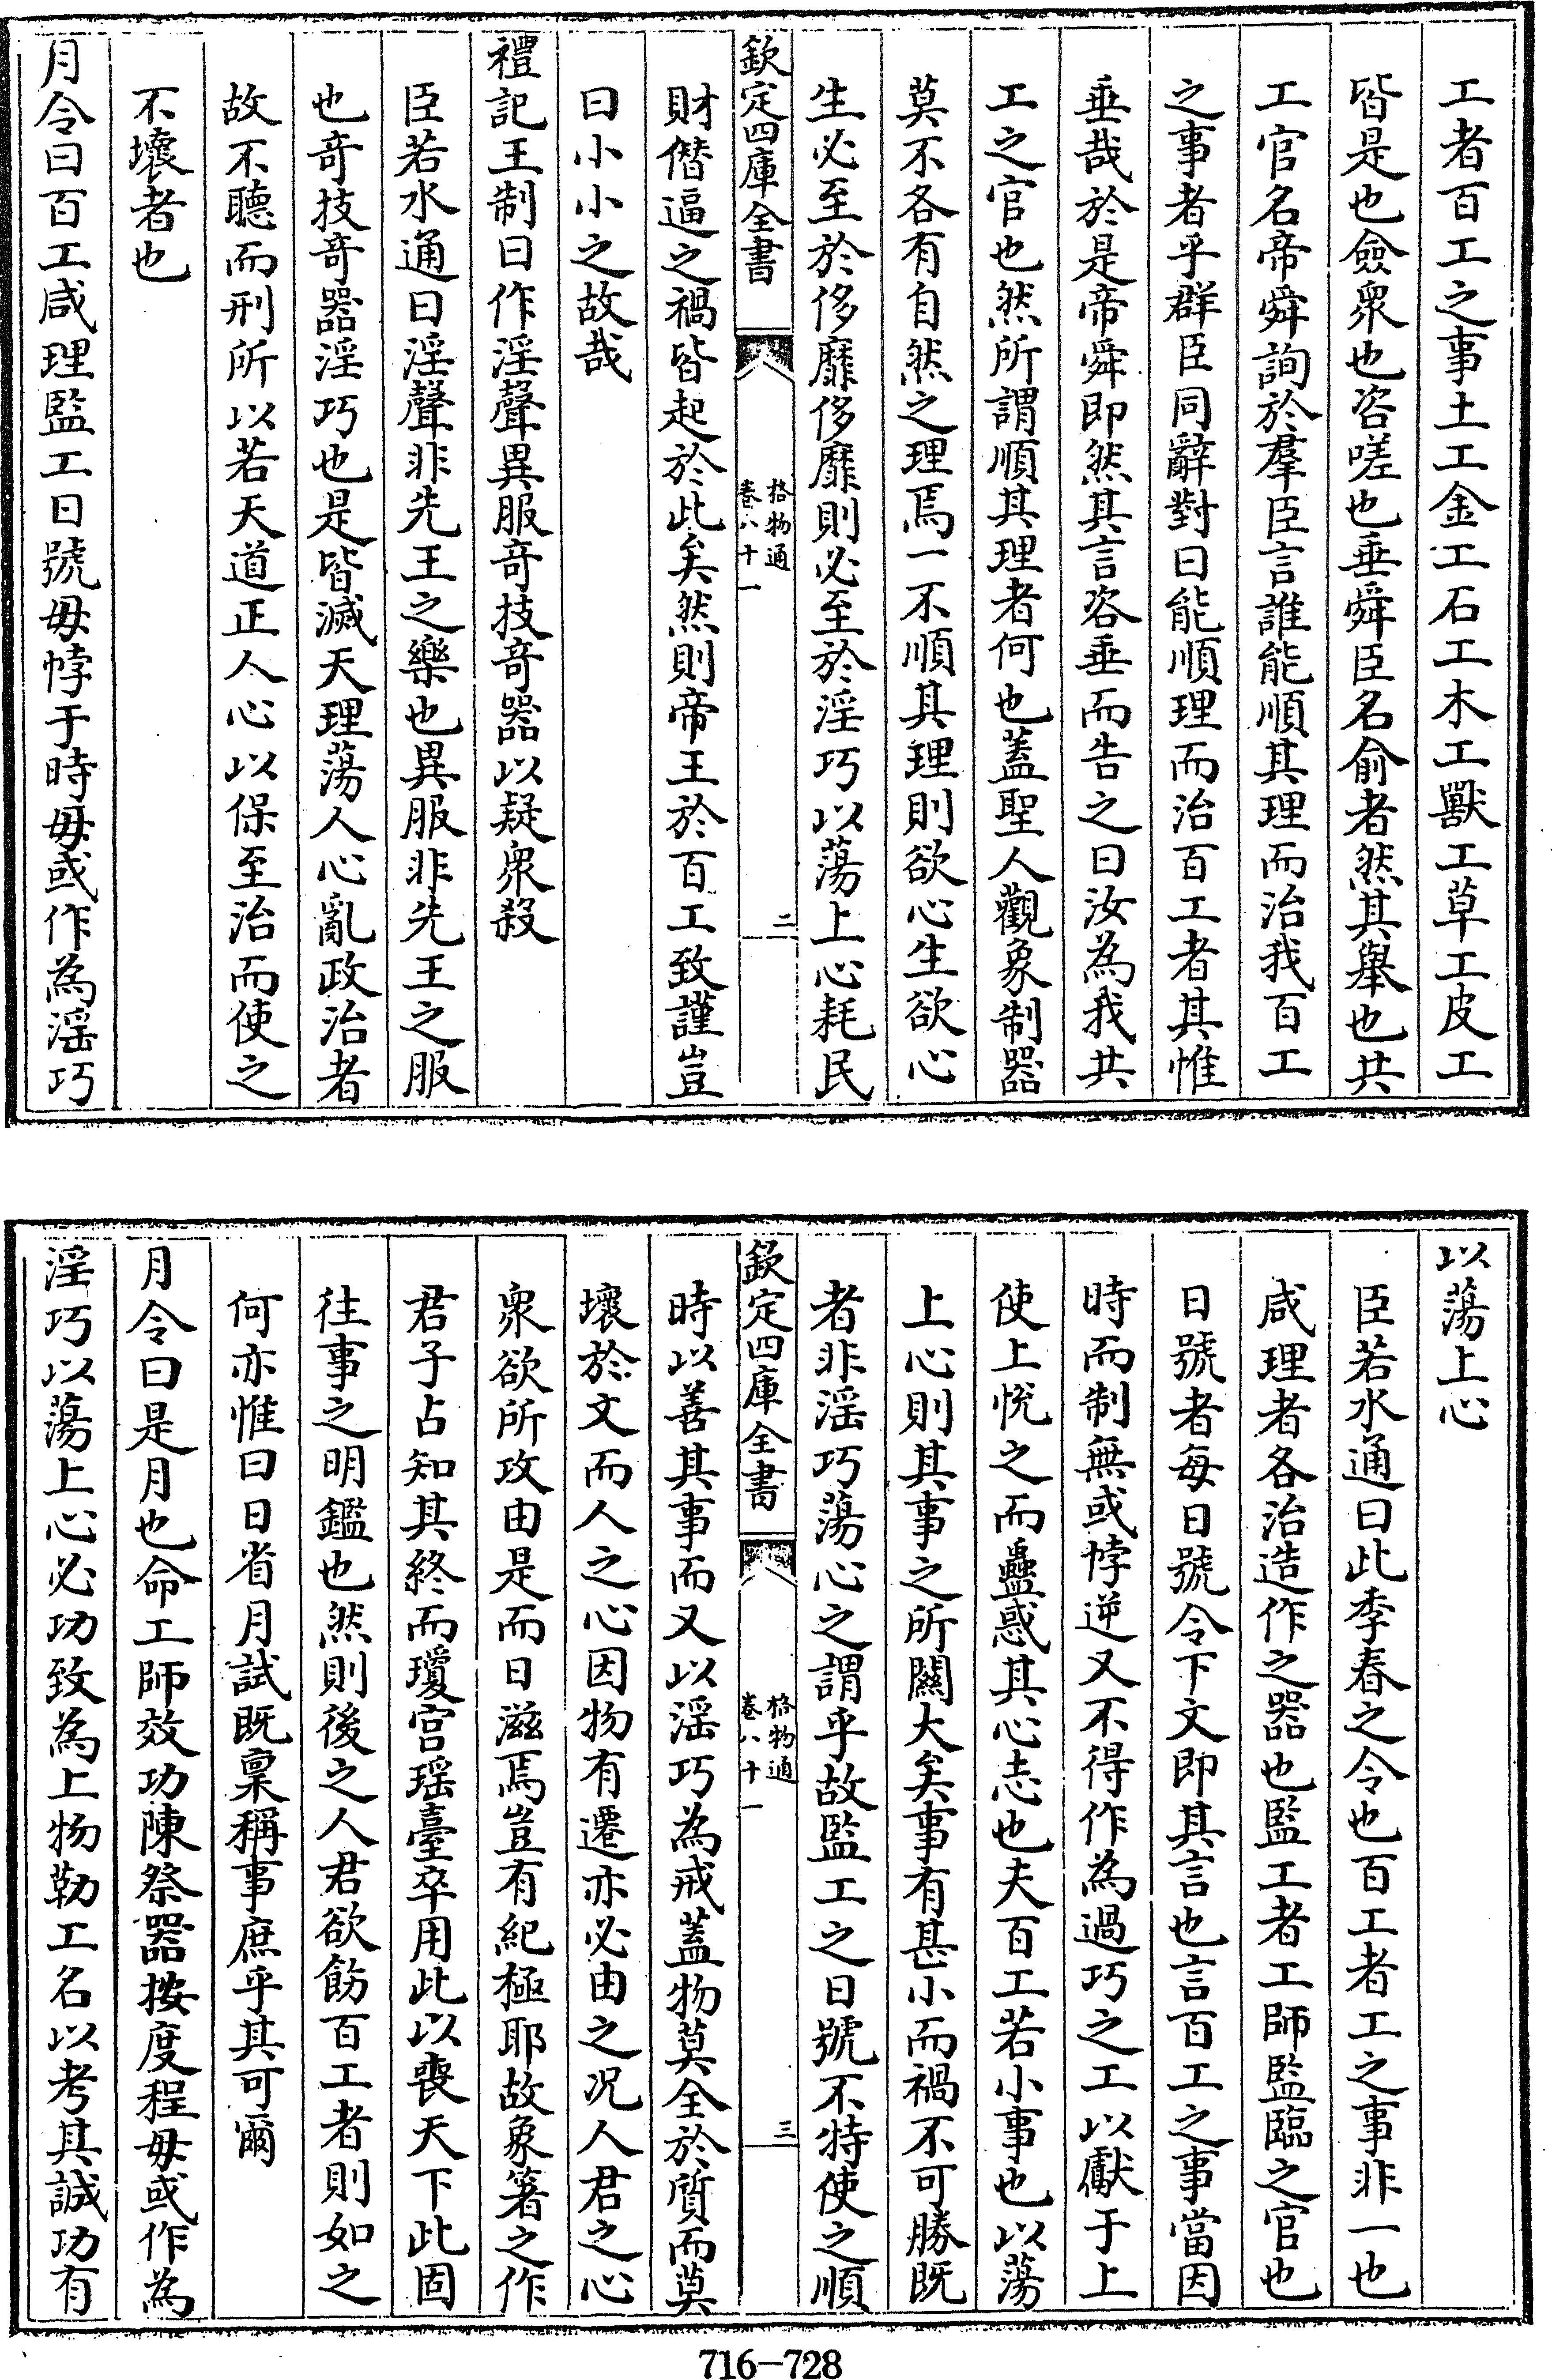 工者百工之事土工金工石工木工獸工草工皮工
皆是也僉衆也咨嗟也垂舜臣名俞者然其舉也共
工官名帝舜詢於羣臣言誰能順其理而治我百工
之事者乎群臣同辭對曰能順理而治百工者其惟
垂哉於是帝舜即然其言咨垂而告之曰汝為我共
工之官也然所謂順其理者何也蓋聖人觀象制器
莫不各有自然之理焉一不順其理則欲心生欲心
生必至於侈靡侈靡則必至於淫巧以蕩上心耗民
欽定四庫全書
格物通
卷八十一
二
財僭逼之禍皆起於此矣然則帝王於百工致謹豈
曰小小之故哉
禮記王制曰作淫聲異服奇技奇器以疑衆殺
臣若水通曰淫聲非先王之樂也異服非先王之服
也奇技奇器淫巧也是皆滅天理蕩人心亂政治者
故不聽而刑所以若天道正人心以保至治而使之
不壞者也
月令曰百工咸理監工日號毋悖于時毋或作為淫巧
以蕩上心
臣若水通曰此季春之令也百工者工之事非一也
咸理者各治造作之器也監工者工師監臨之官也
日號者每日號令下文即其言也言百工之事當因
時而制無或悖逆又不得作為過巧之工以獻于上
使上悅之而蠱惑其心志也夫百工若小事也以蕩
上心則其事之所關大矣事有甚小而禍不可勝既
者非淫巧蕩心之謂乎故監工之日號不特使之順
欽定四庫全書
格物通
卷八十一
三
時以善其事而又以淫巧為戒蓋物莫全於質而莫
壞於文而人之心因物有遷亦必由之况人君之心
衆欲所攻由是而日滋焉豈有紀極耶故象箸之作
君子占知其終而瓊宫瑶臺卒用此以喪天下此固
往事之明鑑也然則後之人君欲飭百工者則如之
何亦惟曰日省月試既稟稱事庶乎其可爾
月令曰是月也命工師效功陳祭器按度程毋或作為
淫巧以蕩上心必功致為上物勒工名以考其誠功有
716-728